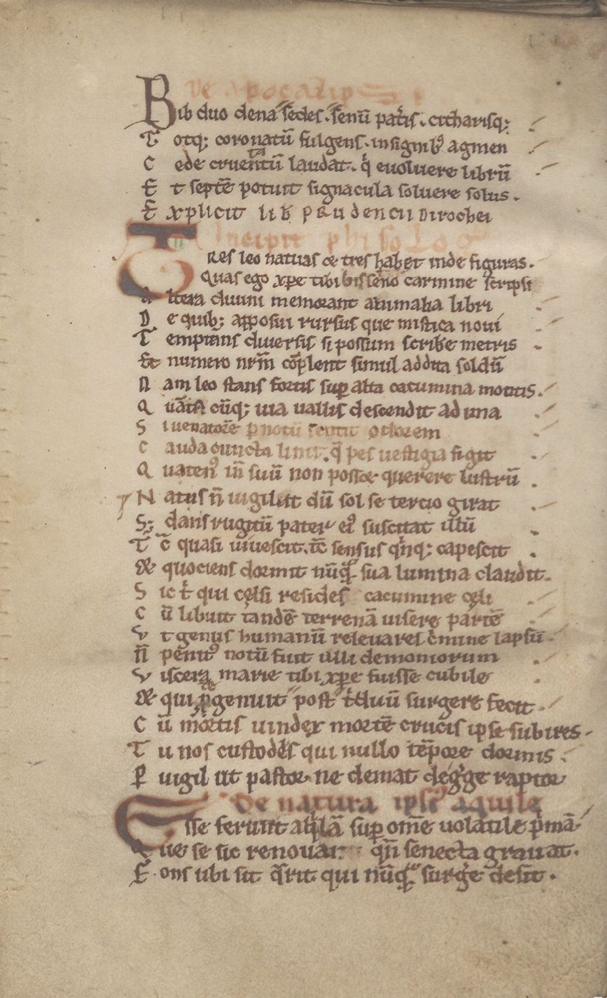 De apocalipsi
Bis duo dena sedes. senū patris. citharisq;
Totq; coronatū fulgens insignib; agmen
Cede cruentū laudat. q̇ euoluere librū
Et septē potuit signacula soluere solus.
Explicit lib prudencii dirochei
Incipit phisolog
Tres leo naturas et tres habet inde figuras.
Quas ego xpe tibi bis seno carmine scripsi
Altera diuini memorant animalia libri
De quib; apposui rursus que mistica noui
Temptans diuersis si possum scribe metris
Et numero nrm cōplent simul addita soldū
Nam leo stans fortis sup alta cacumina montis.
Qua cūq; uia uallis descendit ad una
Si uenatore p notū sentit odorem
Cauda cuncta linit. q̄ pes uestigia figit
Quaten⁹ in suū non possit querere lustrū
Natus n̄ uigilat dū sol se tercio girat
S; dans rugitū pater ei⁹ suscitat illū
Tc̄ quasi uiuescit. tc̄ sensus qnq; capescit
Et quociens dormit nūq sua lumina claudit.
Sic t qui celsi resides cacumine celi
Cū libuit tandē terrenā uisere partē
Vt genus humanū releuares crimine lapsū.
N̄ penit⁹ notū fuit ulli demoniorum
Viscera marie tibi xpe fuisse cubile
Et qui genuit post t̄duū surgere fecit.
Cū mortis uindex mortē crucis ipse subires.
Tu nos custodes qui nullo tēpore dormis.
Puigil ut pastor ne demat de grege raptor
De natura ipsi⁹ aquile
Esse ferunt aqlā sup om̄e uolatile pmā
Que se sic renouat qn̄ senecta grauat.
Fons ubi sit qrit qui nūq surge desit.